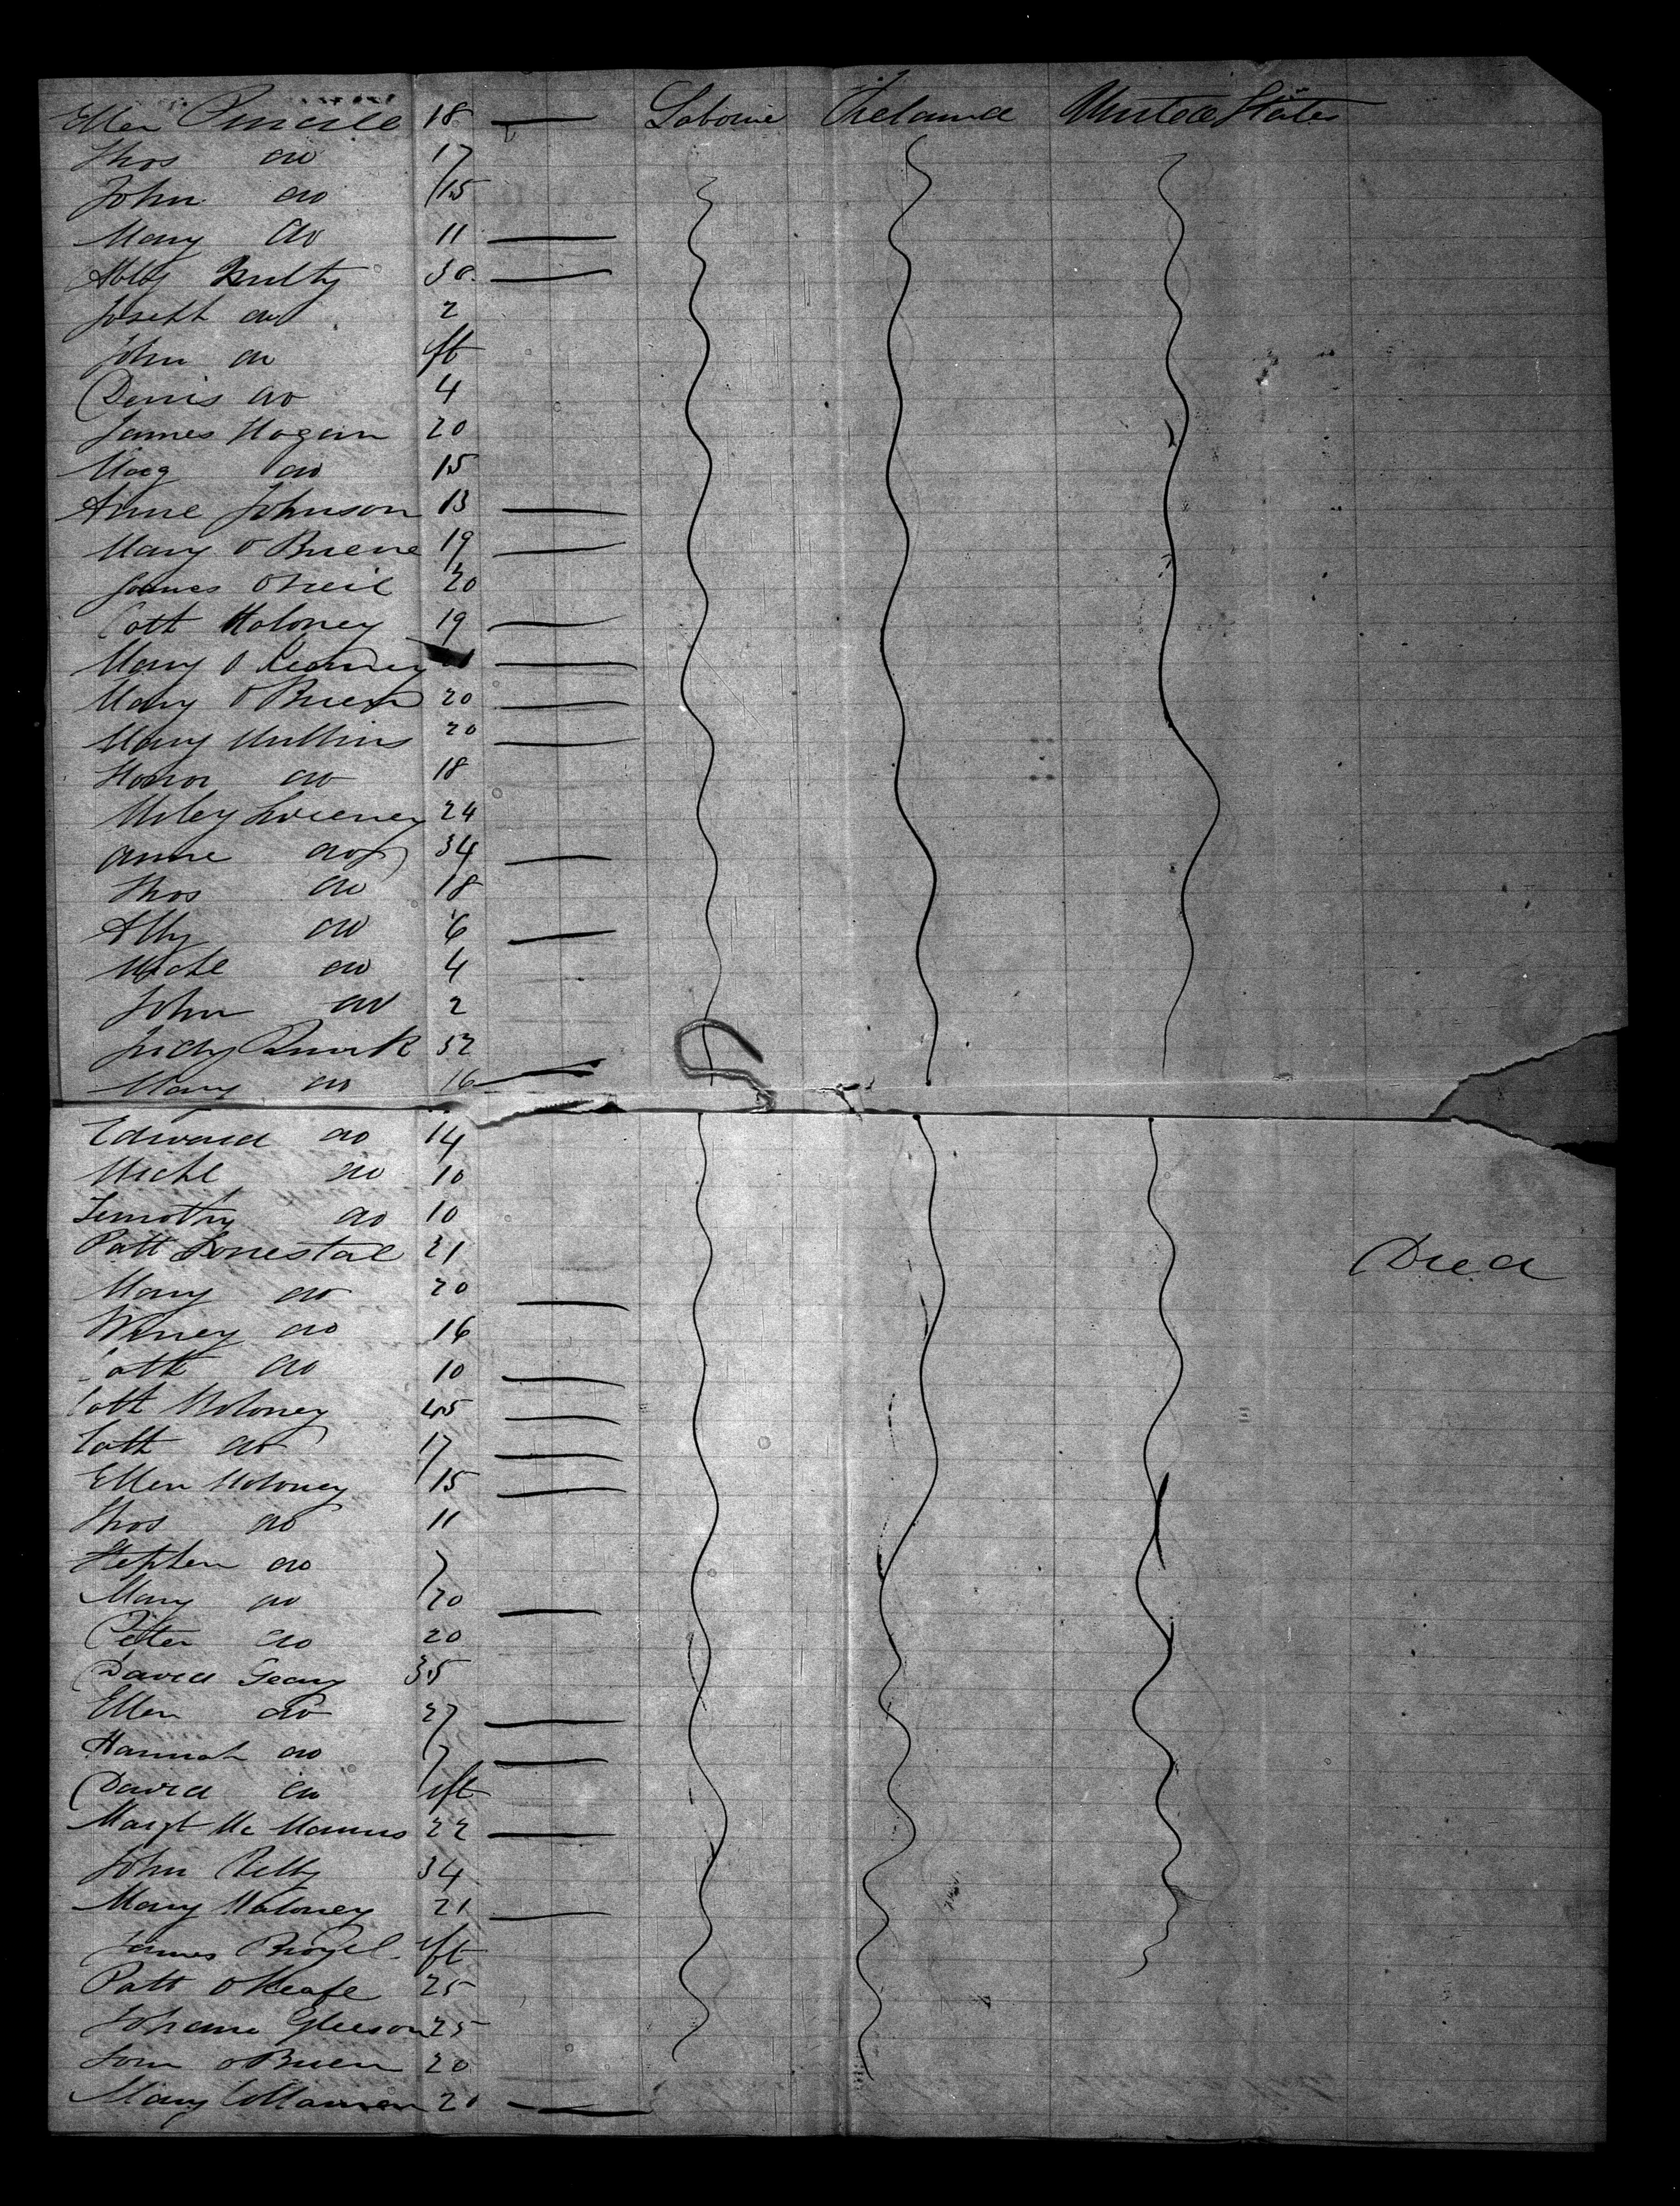 Ellen Purcell 18 — Laborer Ireland United States
Thos do 17
John do 15
Mary do 11 —
Abby Nulty 30 —
Joseph do 2
John do ift
Denis do 4
James Hogan 20
Marg do 15
Anne Johnson 13 —
Mary O Briene 19 —
James ONeil 20
Cath Maloney 19 —
Mary O Kearney —
Mary O Brien 20 —
Mary Mullins 20 —
Honor do 18
Miley Sweeney 24
Anne do 34 —
Thos do 18
Ally do 6 —
Michl do 4
John do 2
Judy Quirk 32
Mary do 16 —
Edward do 14
Michl do 10
Timothy do 10
Patt 21 Died
Mary do 20 —
Winey do 16
Cath do 10 —
Cath Moloney 45 —
Cath do 17 —
Ellen Moloney 15 —
Thos do 11
Stephen do 7
Mary do 20 —
Peter do 20
David Geary 35
Ellen do 27 —
Hannah do 7 —
David do ift
Margt Mc Manus 22 —
John Kelly 34
Mary Maloney 21 —
James ift
Patt OKeafe 25
Johana Gleeson 25
Tom oBrien 20
Mary 20 —